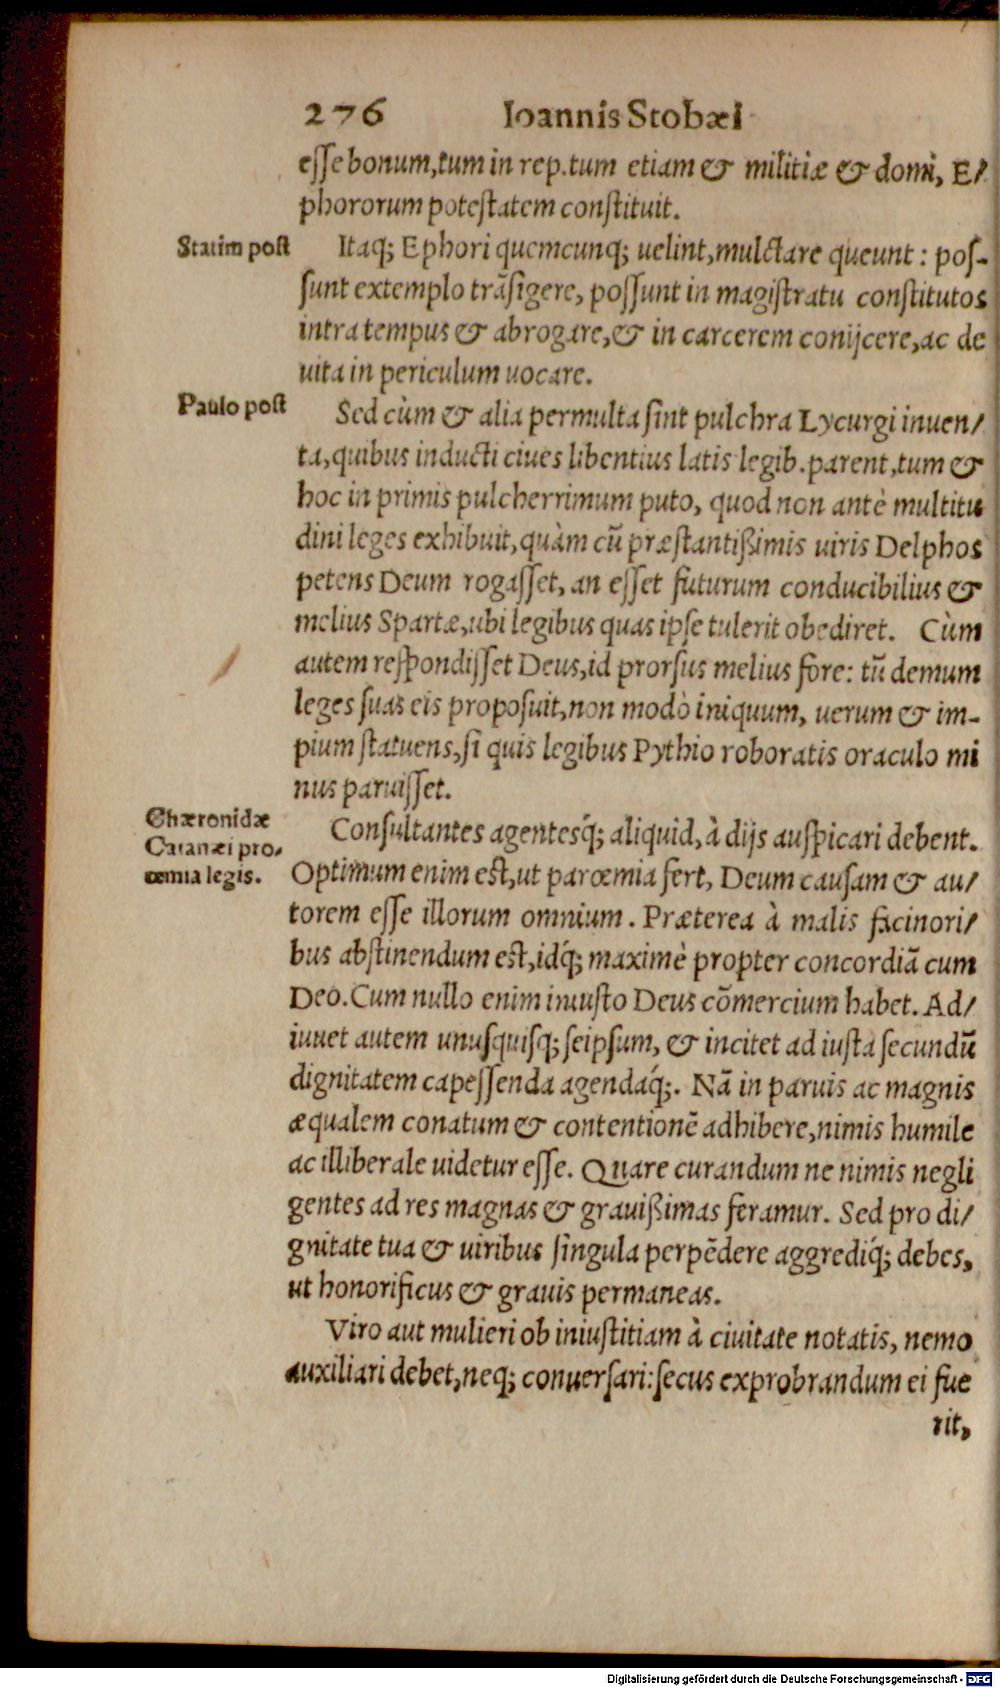 276 Ioannis Stobæi
esse bonum, tum in rep. tum etiam & militiæ & domi, E/
phororum potestatem constituit.
Statim post
Itaq; Ephori quemcunq; uelint, mulctare queunt: pos-
sunt extemplo trãsigere, possunt in magistratu constitutos
intra tempus & abrogare, & in carcerem conijcere, ac de
uita in periculum uocare.
Paulo post
Sed cùm & alia permulta sint pulchra Lycurgi inuen/
ta, quibus inducti ciues libentius latis legib. parent, tum &
hoc in primis pulcherrimum puto, quod non antè multitu
dini leges exhibuit, quàm cũ præstantißimis uiris Delphos
petens Deum rogasset, an esset futurum conducibilius &
melius Spartæ, ubi legibus quas ipse tulerit obediret. Cùm
autem respondisset Deus, id prorsus melius fore: tũ demum
leges suas eis proposuit, non modò iniquum, uerum & im-
pium statuens, si quis legibus Pythio roboratis oraculo mi
nus paruisset.
Chæronidæ
Catanæi pro/
œmia legis.
Consultantes agentesq́; aliquid, à dijs auspicari debent.
Optimum enim est, ut parœmia fert, Deum causam & au/
torem esse illorum omnium. Præterea à malis facinori/
bus abstinendum est, idq́; maximè propter concordiã cum
Deo. Cum nullo enim iniusto Deus cõmercium habet. Ad/
iuuet autem unusquisq; seipsum, & incitet ad iusta secundũ
dignitatem capessenda agendaq́;. Nã in paruis ac magnis
æqualem conatum & contentionẽ adhibere, nimis humile
ac illiberale uidetur esse. Quare curandum ne nimis negli
gentes ad res magnas & grauißimas feramur. Sed pro di/
gnitate tua & uiribus singula perpẽdere aggrediq́; debes,
ut honorificus & grauis permaneas.
Viro aut mulieri ob iniustitiam à ciuitate notatis, nemo
auxiliari debet, neq; conuersari: secus exprobrandum ei fue
rit,
Digitalisierung gefördert durch die Deutsche Forschungsgemeinschaft - DFG